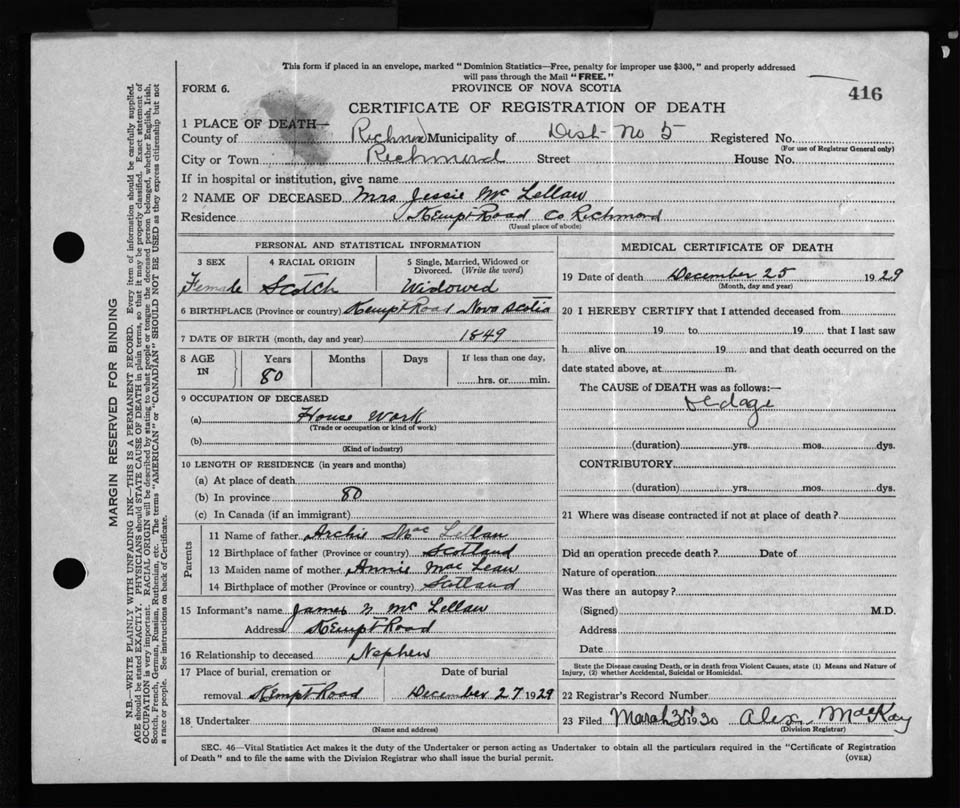 This form if placed in an envelope, marked "Dominion Statistics—Free, penalty for improper use $300," and properly addressed
will pass through the Mail "FREE."
FORM 6.
PROVINCE OF NOVA SCOTIA
416
CERTIFICATE OF REGISTRATION OF DEATH
1 PLACE OF DEATH—
County of Richmond Municipality of Dist- No 5 Registered No.
(For use of Registrar General only)
City or Town Richmond Street House No.
If in hospital or institution, give name
2 NAME OF DECEASED Mrs Jessie Mc Lellan
Residence Kempt Road Co Richmond
(Usual place of abode)
PERSONAL AND STATISTICAL INFORMATION
3 SEX 4 RACIAL ORIGIN 5 Single, Married, Widowed or
Divorced. (Write the word)
Female Scotch Widowed
6 BIRTHPLACE (Province or country) Kempt Road Nova Scotia
7 DATE OF BIRTH (month, day and year) 1849
8 AGE IN Years Months Days If less than one day,
80 hrs. or min.
9 OCCUPATION OF DECEASED
(a) House Work
(Trade or occupation or kind of work)
(b)
(Kind of industry)
10 LENGTH OF RESIDENCE (in years and months)
(a) At place of death
(b) In province 80
(c) In Canada (if an immigrant)
Parents
11 Name of father Archie Mac Lellan
12 Birthplace of father (Province or country) Scotland
13 Maiden name of mother Annie Mac Lean
14 Birthplace of mother (Province or country) Scotland
15 Informant's name James N Mc Lellan
Address Kempt Road
16 Relationship to deceased Nephew
17 Place of burial, cremation or Date of burial
removal Kempt Road December 27 1929
18 Undertaker
(Name and address)
MEDICAL CERTIFICATE OF DEATH
19 Date of death December 25 1929
(Month, day and year)
20 I HEREBY CERTIFY that I attended deceased from
19 to 19 that I last saw
h alive on 19 and that death occurred on the
date stated above, at m.
The CAUSE of DEATH was as follows:—
Oldage
(duration) yrs. mos. dys.
CONTRIBUTORY
(duration) yrs. mos. dys.
21 Where was disease contracted if not at place of death?
Did an operation precede death? Date of
Nature of operation
Was there an autopsy?
(Signed) M.D.
Address
Date
State the Disease causing Death, or in death from Violent Causes, state (1) Means and Nature of
Injury, (2) whether Accidental, Suicidal or Homicidal.
22 Registrar's Record Number
23 Filed March 1930 Alex. MacKay
(Division Registrar)
SEC. 46—Vital Statistics Act makes it the duty of the Undertaker or person acting as Undertaker to obtain all the particulars required in the "Certificate of Registration
of Death" and to file the same with the Division Registrar who shall issue the burial permit.
(OVER)
MARGIN RESERVED FOR BINDING
N.B.—WRITE PLAINLY WITH UNFADING INK—THIS IS A PERMANENT RECORD. Every item of information should be carefully supplied.
AGE should be stated EXACTLY. PHYSICIANS should STATE CAUSE OF DEATH in plain terms, so that it may be properly classified. Exact statement of
OCCUPATION is very important. RACIAL ORIGIN will be described by stating to what people or tongue the deceased person belonged, whether English, Irish,
Scotch, French, German, Russian, Ruthenian, etc. The terms "AMERICAN" or "CANADIAN" SHOULD NOT BE USED as they express citizenship but not
a race or people. See instructions on back of Certificate.